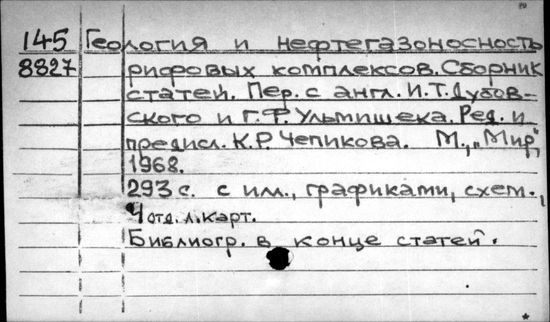 145 Геология и нефтегазоносность
8827 рифовых комплексов. Сборник
статей. Пер. с англ. И.Т. Дубов-
ского и Г.Ф. Ульмишека. Ред. и
предисл. К.Р. Чепикова. М., „Мир",
1968.
293 с. с илл., графиками, схем.,
4 отд. л. карт.
Библиогр. в конце статей.